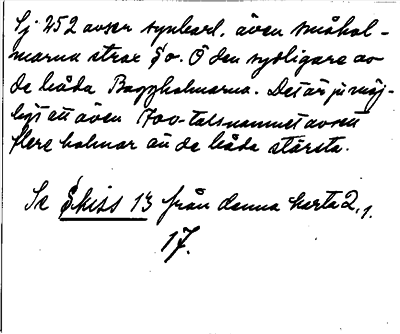 Sj 252 avser synbarl. även småhol-
marna strax § o. Ö den sydligare av
de båda Baggholmarna. Det är ju möj-
ligt att även 700-talsnamnet avsett
flere holmar än de båda största.
Se Skiss 13 från denna karta 2, 1.
17.